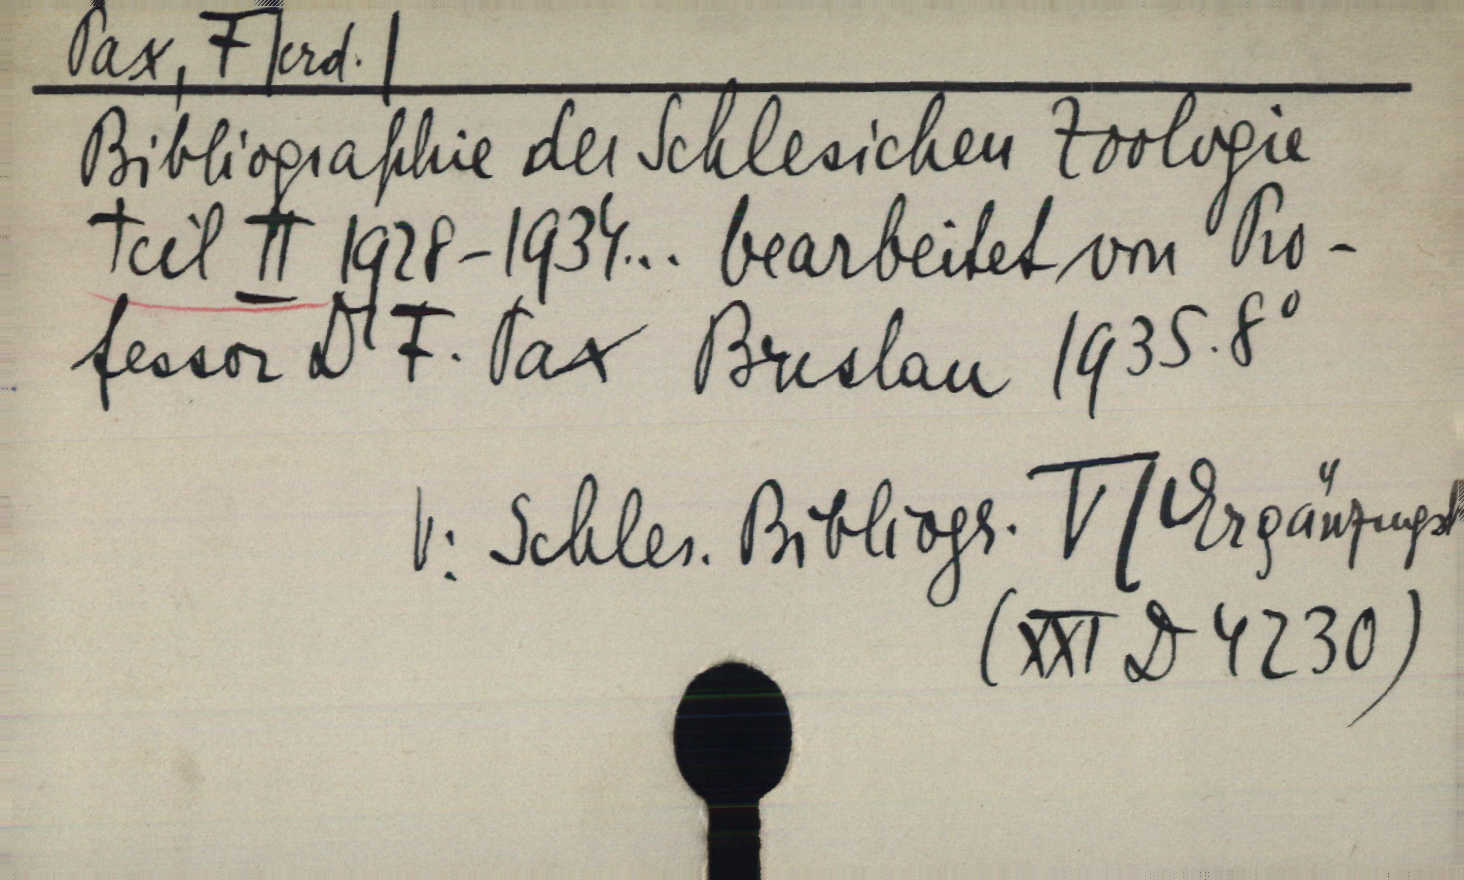 Pax, F[erd.]
Bibliographie der Schlesichen Zoologie
Teil II 1928-1934... bearbeitet von Pro-
fessor Dr F. Pax Breslau 1935. 8°
V: Schles. Bibliogr. V/Ergänzungs
(XXI D 4230)